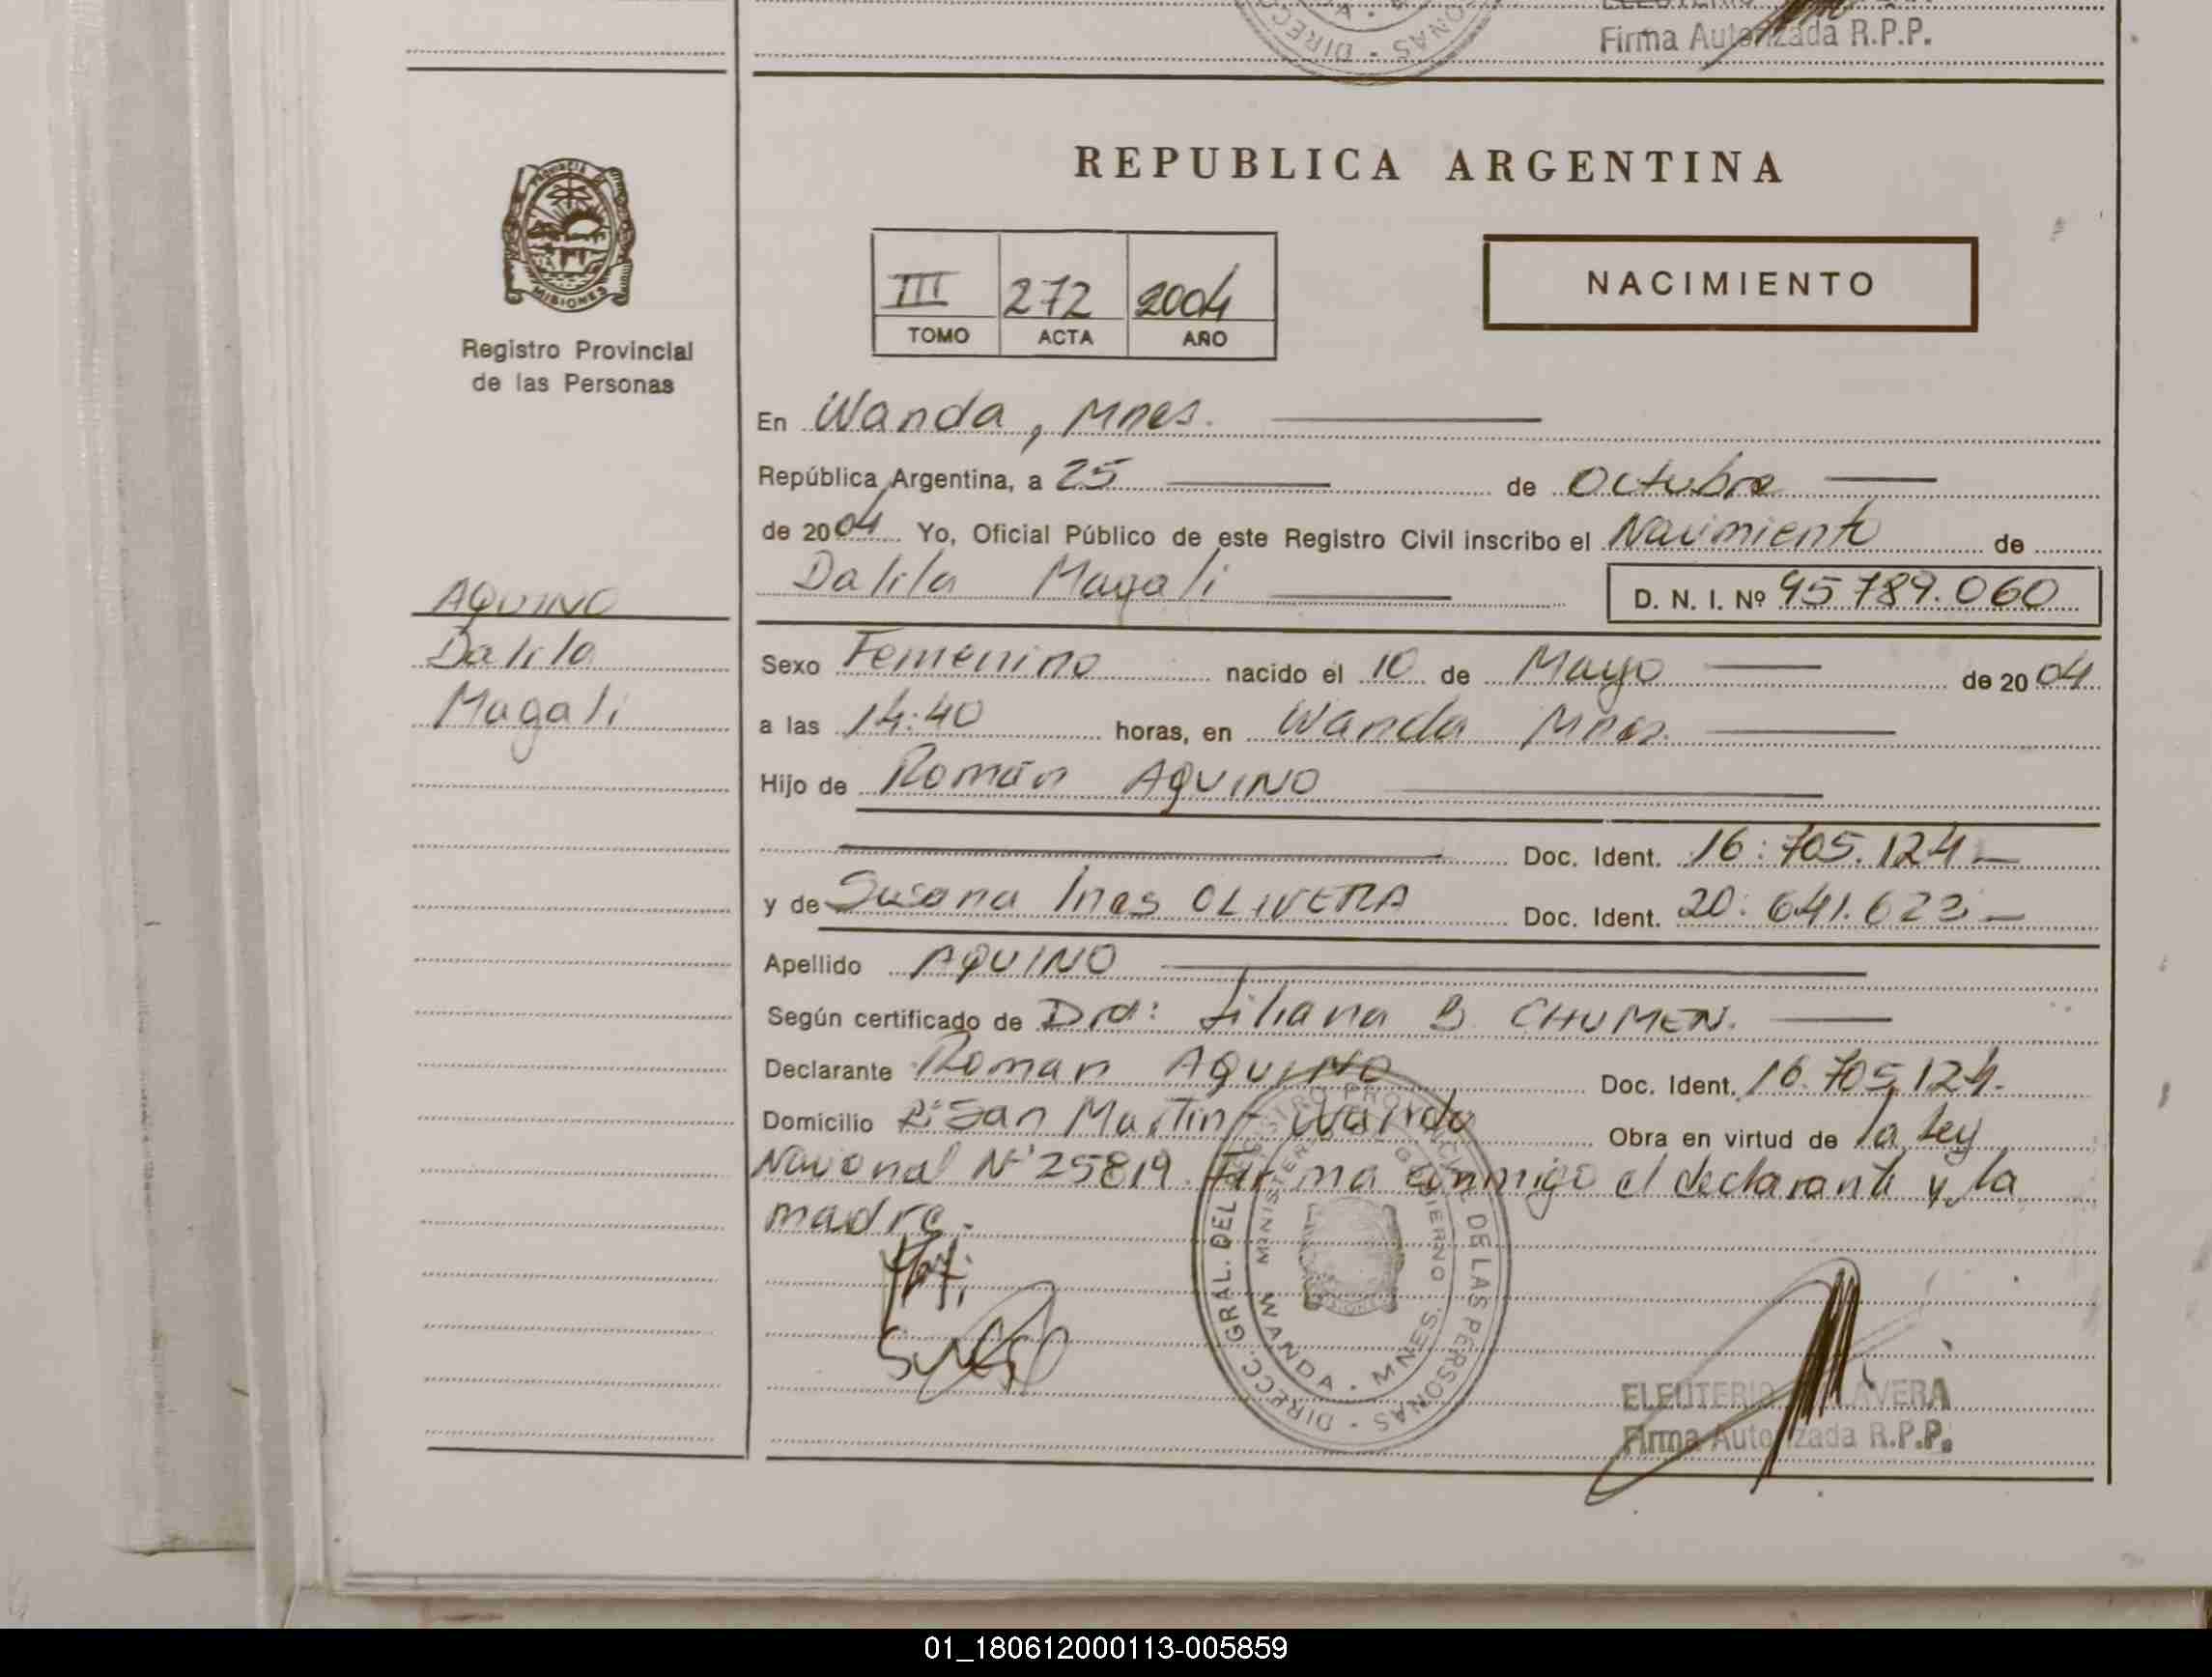 Firma Autorizada R.P.P.
REPUBLICA ARGENTINA
PROVINCIA DE
MISIONES
Registro Provincial
de las Personas
III 272 2004
TOMO ACTA AÑO
NACIMIENTO
En Wanda, Mnes.
República Argentina, a 25 de Octubre
de 2004 Yo, Oficial Público de este Registro Civil inscribo el Nacimiento de
Dalila Magali D. N. I. Nº 45.789.060
AQUINO
Dalila
Magali
Sexo Femenino nacido el 10 de Mayo de 2004
a las 14:40 horas, en Wanda Mnes.
Hijo de Román AQUINO
Doc. Ident. 16.705.124
y de Susana Ines OLIVERA Doc. Ident. 20.641.623
Apellido AQUINO
Según certificado de Dra: Liliana B. CHUMEN.
Declarante Roman AQUINO Doc. Ident. 16.705.124.
Domicilio Bº San Martin - Wanda Obra en virtud de la Ley
Nacional Nº 25819. Firma conmigo el declarante y la
madre.
DIRECC. GRAL. DEL REGISTRO PROVINCIAL DE LAS PERSONAS
MINISTERIO GOBIERNO
WANDA - MNES.
ELEUTERIO
Firma Autorizada R.P.P.
01_180612000113-005859